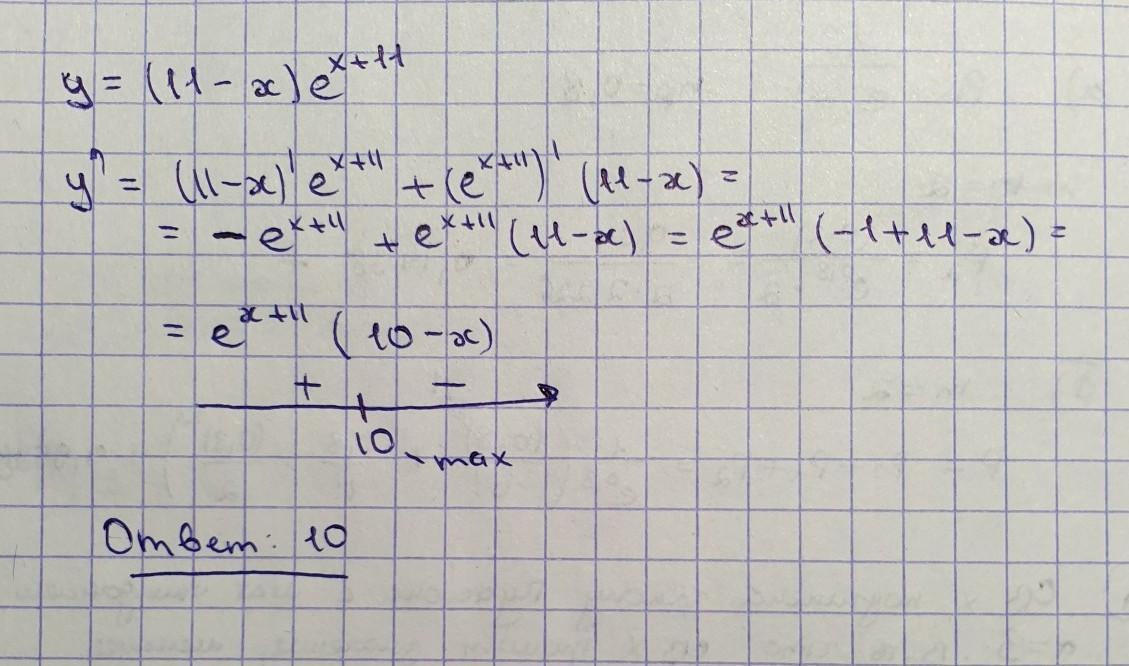 y = (11 - x) e^{x+11}
y' = (11-x)' e^{x+11} + (e^{x+11})' (11-x) =
= - e^{x+11} + e^{x+11} (11-x) = e^{x+11} (-1+11-x) =
= e^{x+11} (10-x)
+ −
10 - max
Ответ: 10